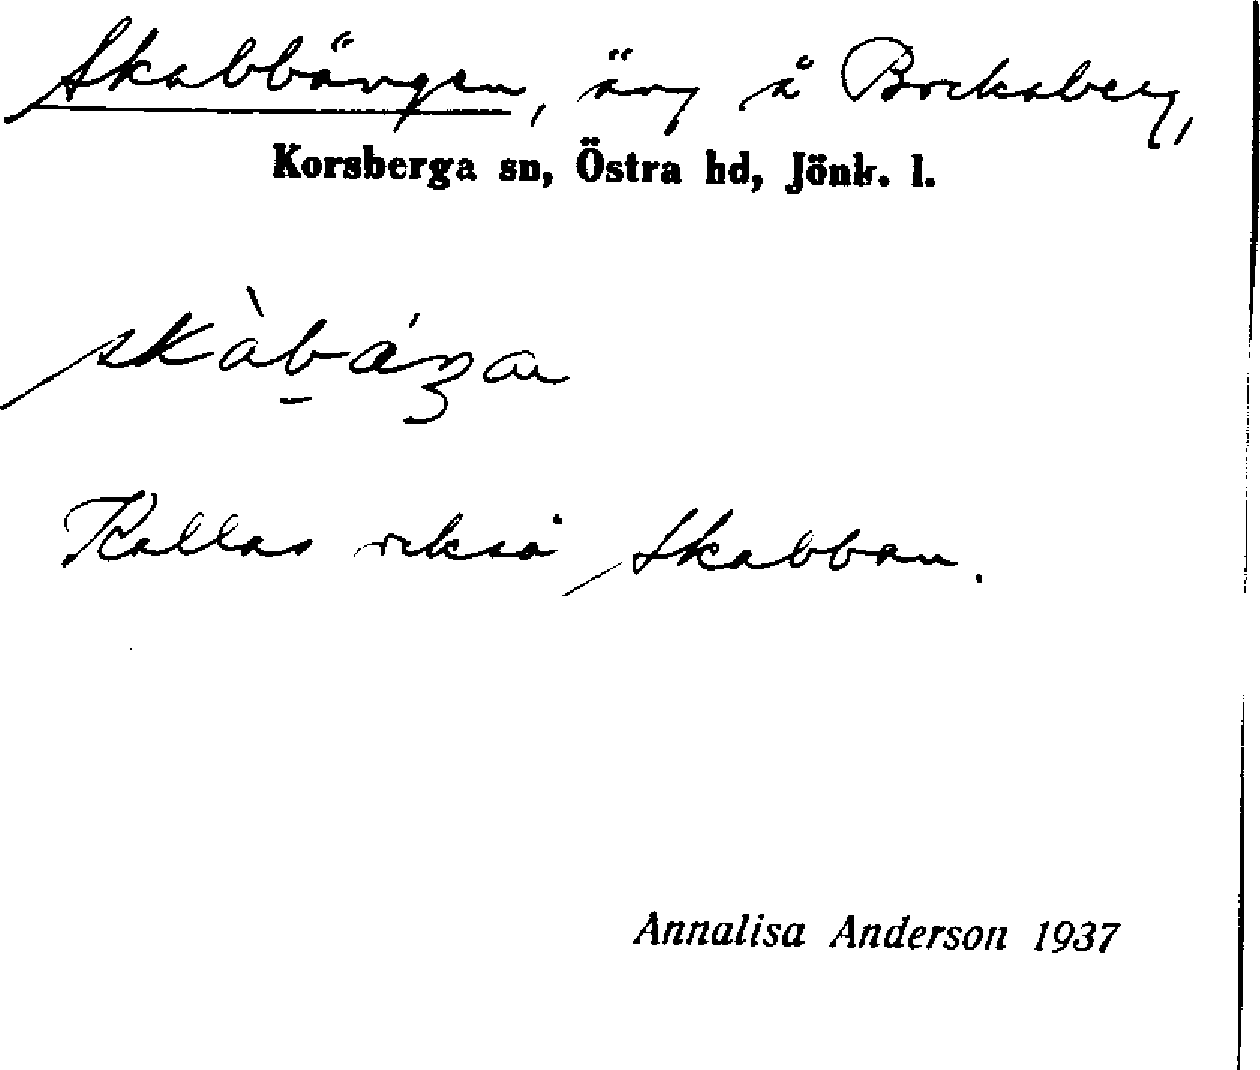 Skabbängen, äng å Bocksberg,
Korsberga sn, Östra hd, Jönk. l.
Kallas också Skabban.
Annalisa Anderson 1937